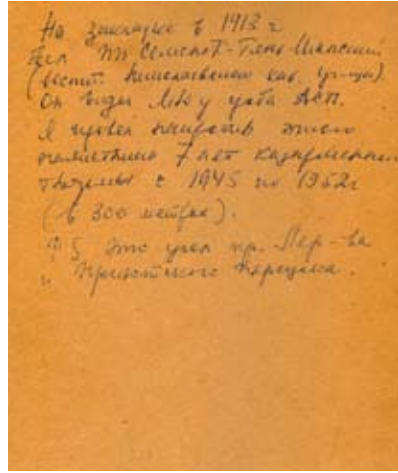 На закладке в 1913 г
был ПП Семенов-Тянь-Шанский
(воспит. Николаевского кав. уч-ща).
Он видел МЮ у гроба АСП.
Я провел напротив этого
памятника 7 лет казарменной
1945 по 1952г
(в 300 метрах).
P.S Это угол пр. Лер-ва
и Приютского переулка.